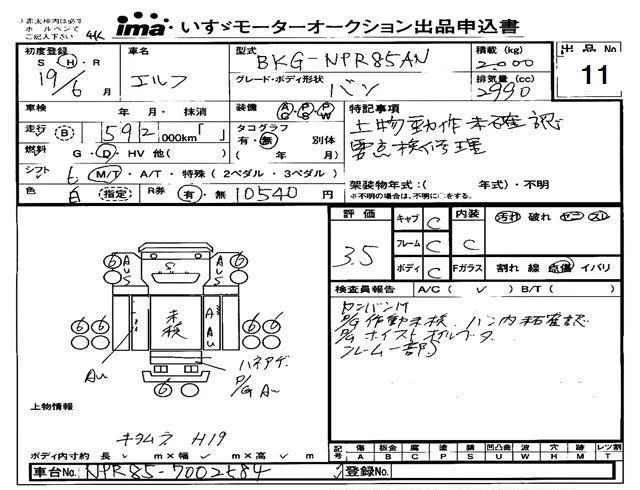 赤太枠内は必ず
ボールペンで
ご記入下さい
4K
ima いすゞモーターオークション出品申込書
初度登録
S・H・R
19/6月
車名
エルフ
型式
BKG-NPR85AN
グレード・ボディ形状
バン
積載(kg)
2000
排気量(cc)
2990
出品No
11
車検 年・月・抹消
装備 AC PS PW
走行 B 592000km「 」
タコグラフ
有・無 別体
( 年 月)
燃料 G・D・HV 他( )
シフト 6 M/T・A/T・特殊(2ペダル・3ペダル)
色 白 指定 R券 有・無 10540円
特記事項
上物動作未確認
要点検修理
架装物年式:( 年式)・不明
※不明の場合は、不明に○をする。
評価
3.5
キャブ C
フレーム C
ボディ C
内装
C
汚れ 破れ ヤニ スレ
Fガラス 割れ 線 点傷 イバリ
検査員報告 A/C( ✓ ) B/T( )
P/G作動未検 バン内未確認
フレーム一部
6 6
A U S
S
A U S
6 6
未検
A
A
AU
6 6
6 6
AU
ハネアゲ
P/G AU
上物情報
キヨムネ H19
ボディ内寸約 長 ✓ m×幅 ✓ m×高 ✓ m
記号 傷 板金 腐 塗 錆 凹凸曲 波 穴 時 レツ割
A B C P S U W H M T
車台No. NPR85-7002584
登録No.